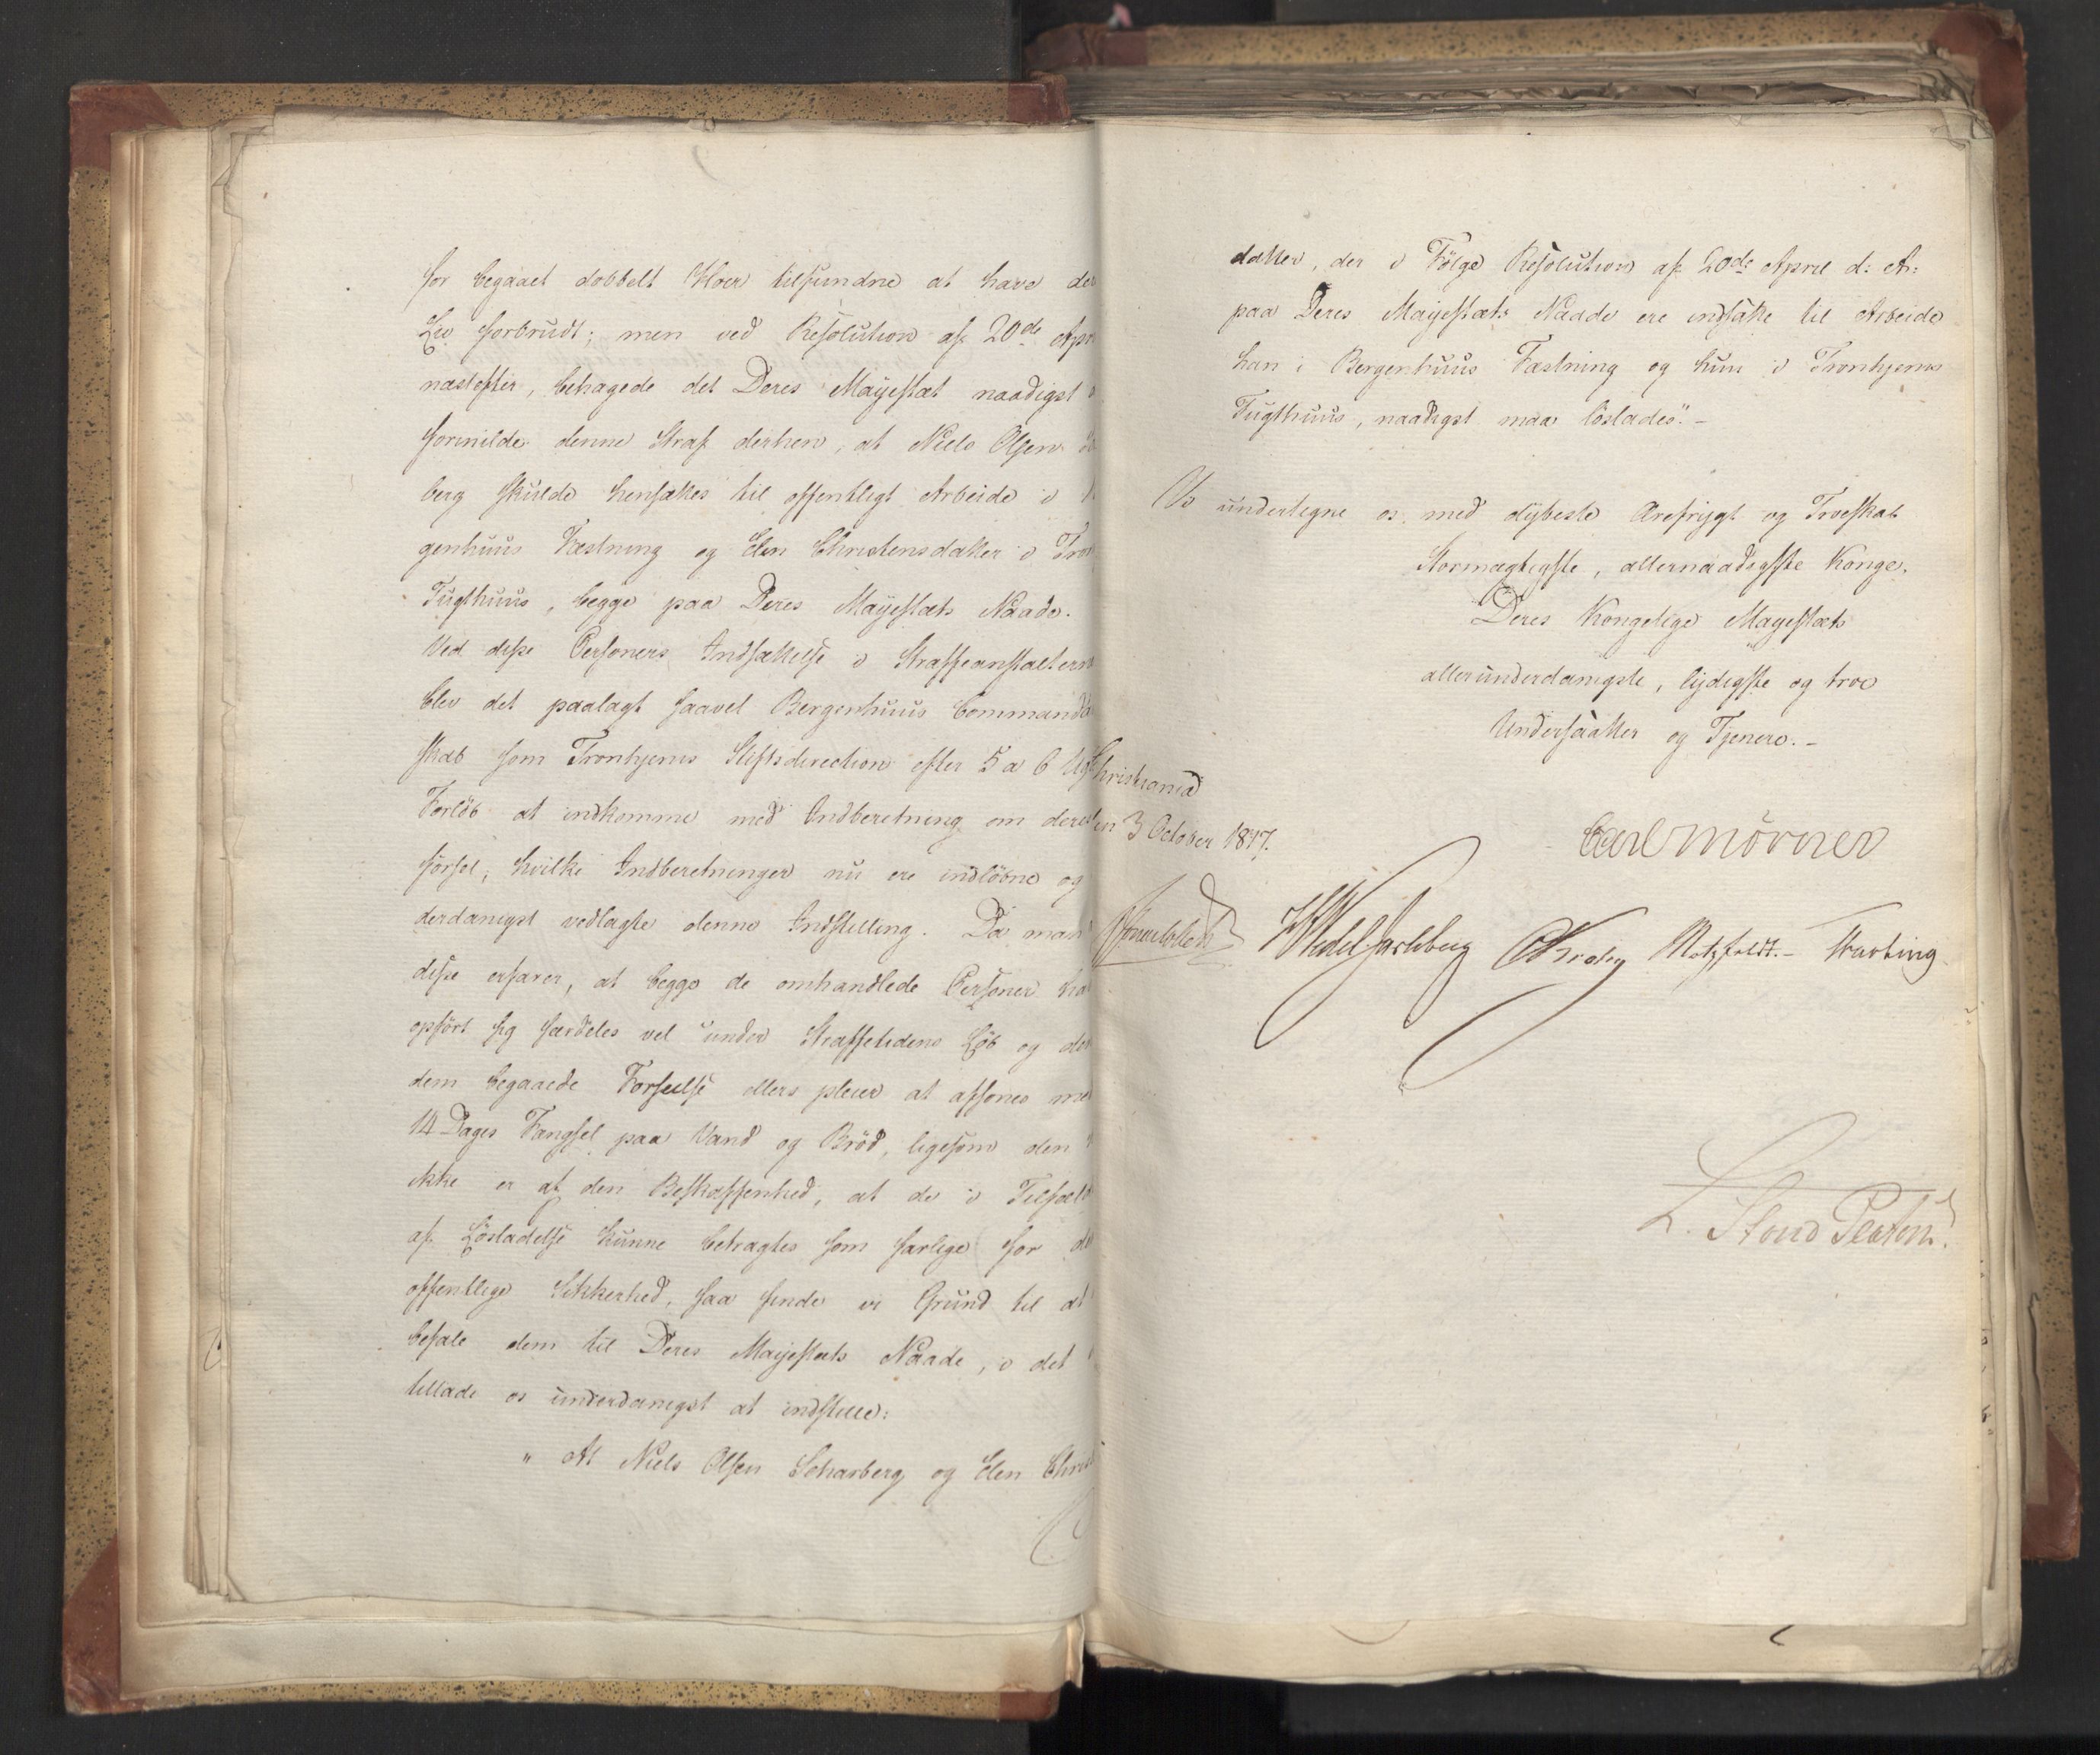 for begaaet dobbelt Hoer tilfundne at have der
Liv forbrudt; men ved Resolution af 20de Apr
næstefter, behagede det Deres Mayestæt naadigst
formilde denne Straf derhen, at Niels Olsen
berg skulde hensættes til offentligt Arbeide i
genhuus Fæstning og Elen Christensdatter i Tron
Tugthuus, begge paa Deres Mayestæts Naade.
Ved disse Personers Indsættelse i Straffeanstaltern
blev det paalagt saavel Bergenhuus Commanda
skab som Tronhjems Stiftsdirection efter 5 a 6
Forløb at indkomme med Indberetning om deres
førsel, hvilke Indberetninger nu ere indløbne og
derdanigst vedlagte denne Indstilling. Da man
disse erfarer, at begge de omhandlede Personer ha
opført sig særdeles vel under Straffetidens Løb og den
dem begaaede Forseelse ellers pleier at afsones med
14 Dages Fængsel paa Vand og Brød, ligesom den
ikke er af den Beskaffenhed, at de i Tilfælde
af Løsladelse kunne betragtes som farlige for de
offentlige Sikkerhed, saa finde vi Grund til at
befale dem til Deres Mayestæts Naade, i det
tillade os underdanigst at indstille:
" At Niels Olsen Scharberg og Elen Christ
datter, der i Følge Resolution af 20de April d: A:
paa Deres Mayestæts Naade ere indsatte til Arbeide
han i Bergenhuus Fæstning og hun i Tronhjems
Tugthuus, naadigst maa løslades". -
Vi undertegne os med dybeste Ærefrygt og Troeskab
Stormægtigste, allernaadigste Konge.
Deres Kongelige Mayestæts
allerunderdanigste, lydigste og troe
Undersaatter og Tjenere. -
Christiania
den 3 October 1817.
Carl Mörner
Sommelsked
HWedel Jarlsberg CKrohg Motzfeldt. - Fasting
L. Stoud Platou.